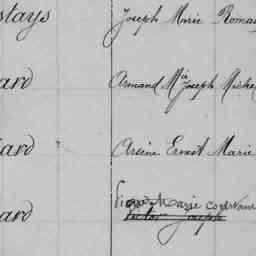 stays Joseph Marie Roma
ard Armand Mie Joseph Miche
ard Arsène Ernest Marie
Marie Constan
ard Victor Joseph